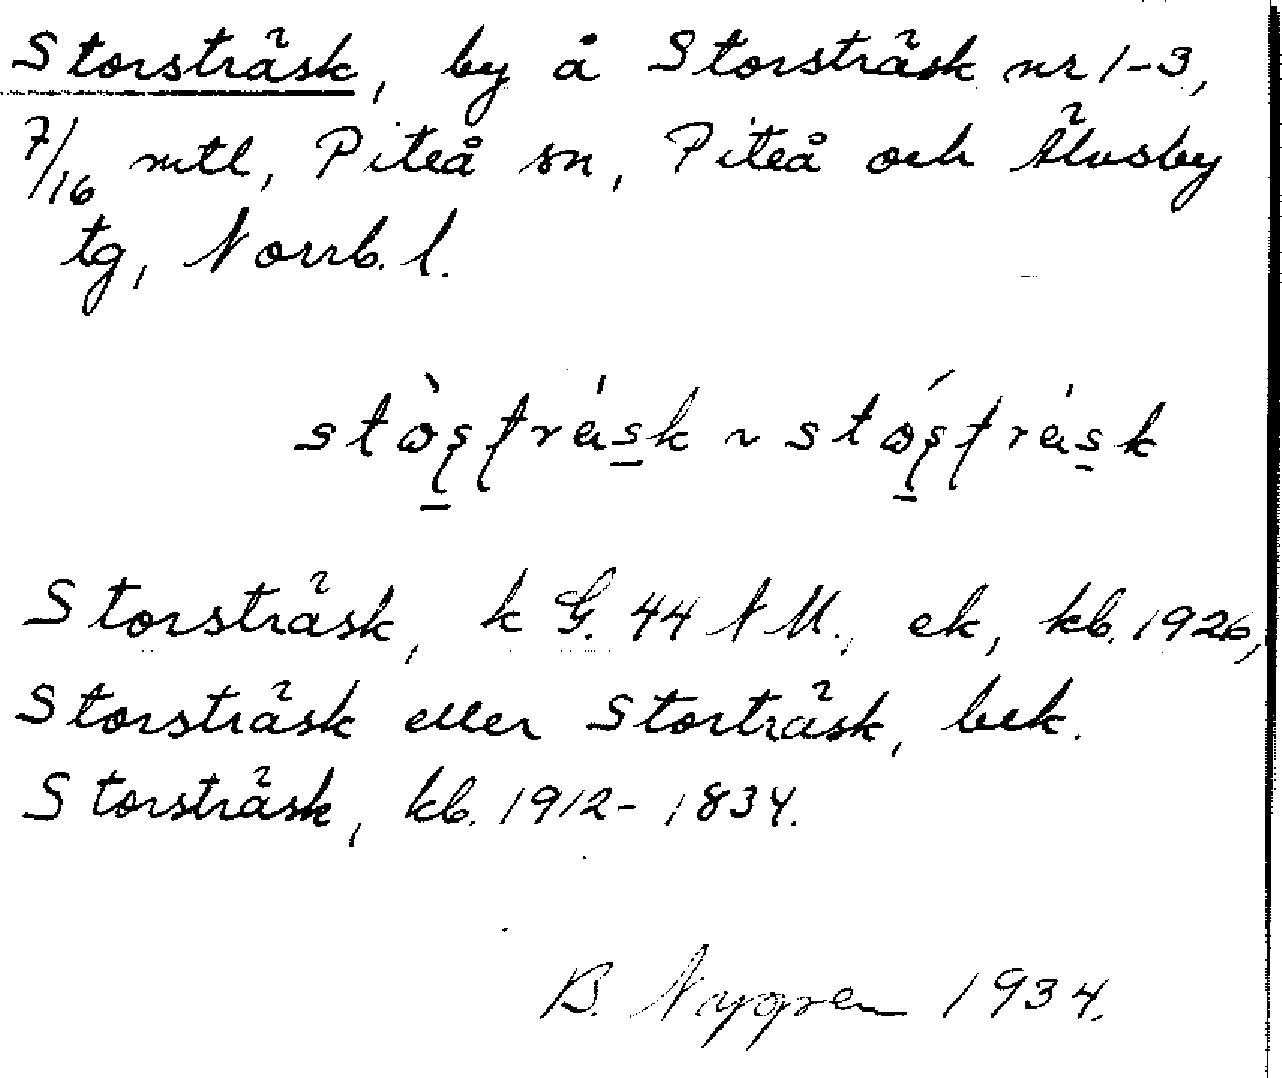 Storsträsk, by å Storsträsk nr 1-3,
7/16 mtl, Piteå sn, Piteå och Älvsby
tg, Norrb. l.
Storsträsk, k G. 44 N M., ek, kb. 1926,
Storsträsk eller Storträsk, bek.
Storsträsk, kb. 1912-1834.
B. Nygren 1934.